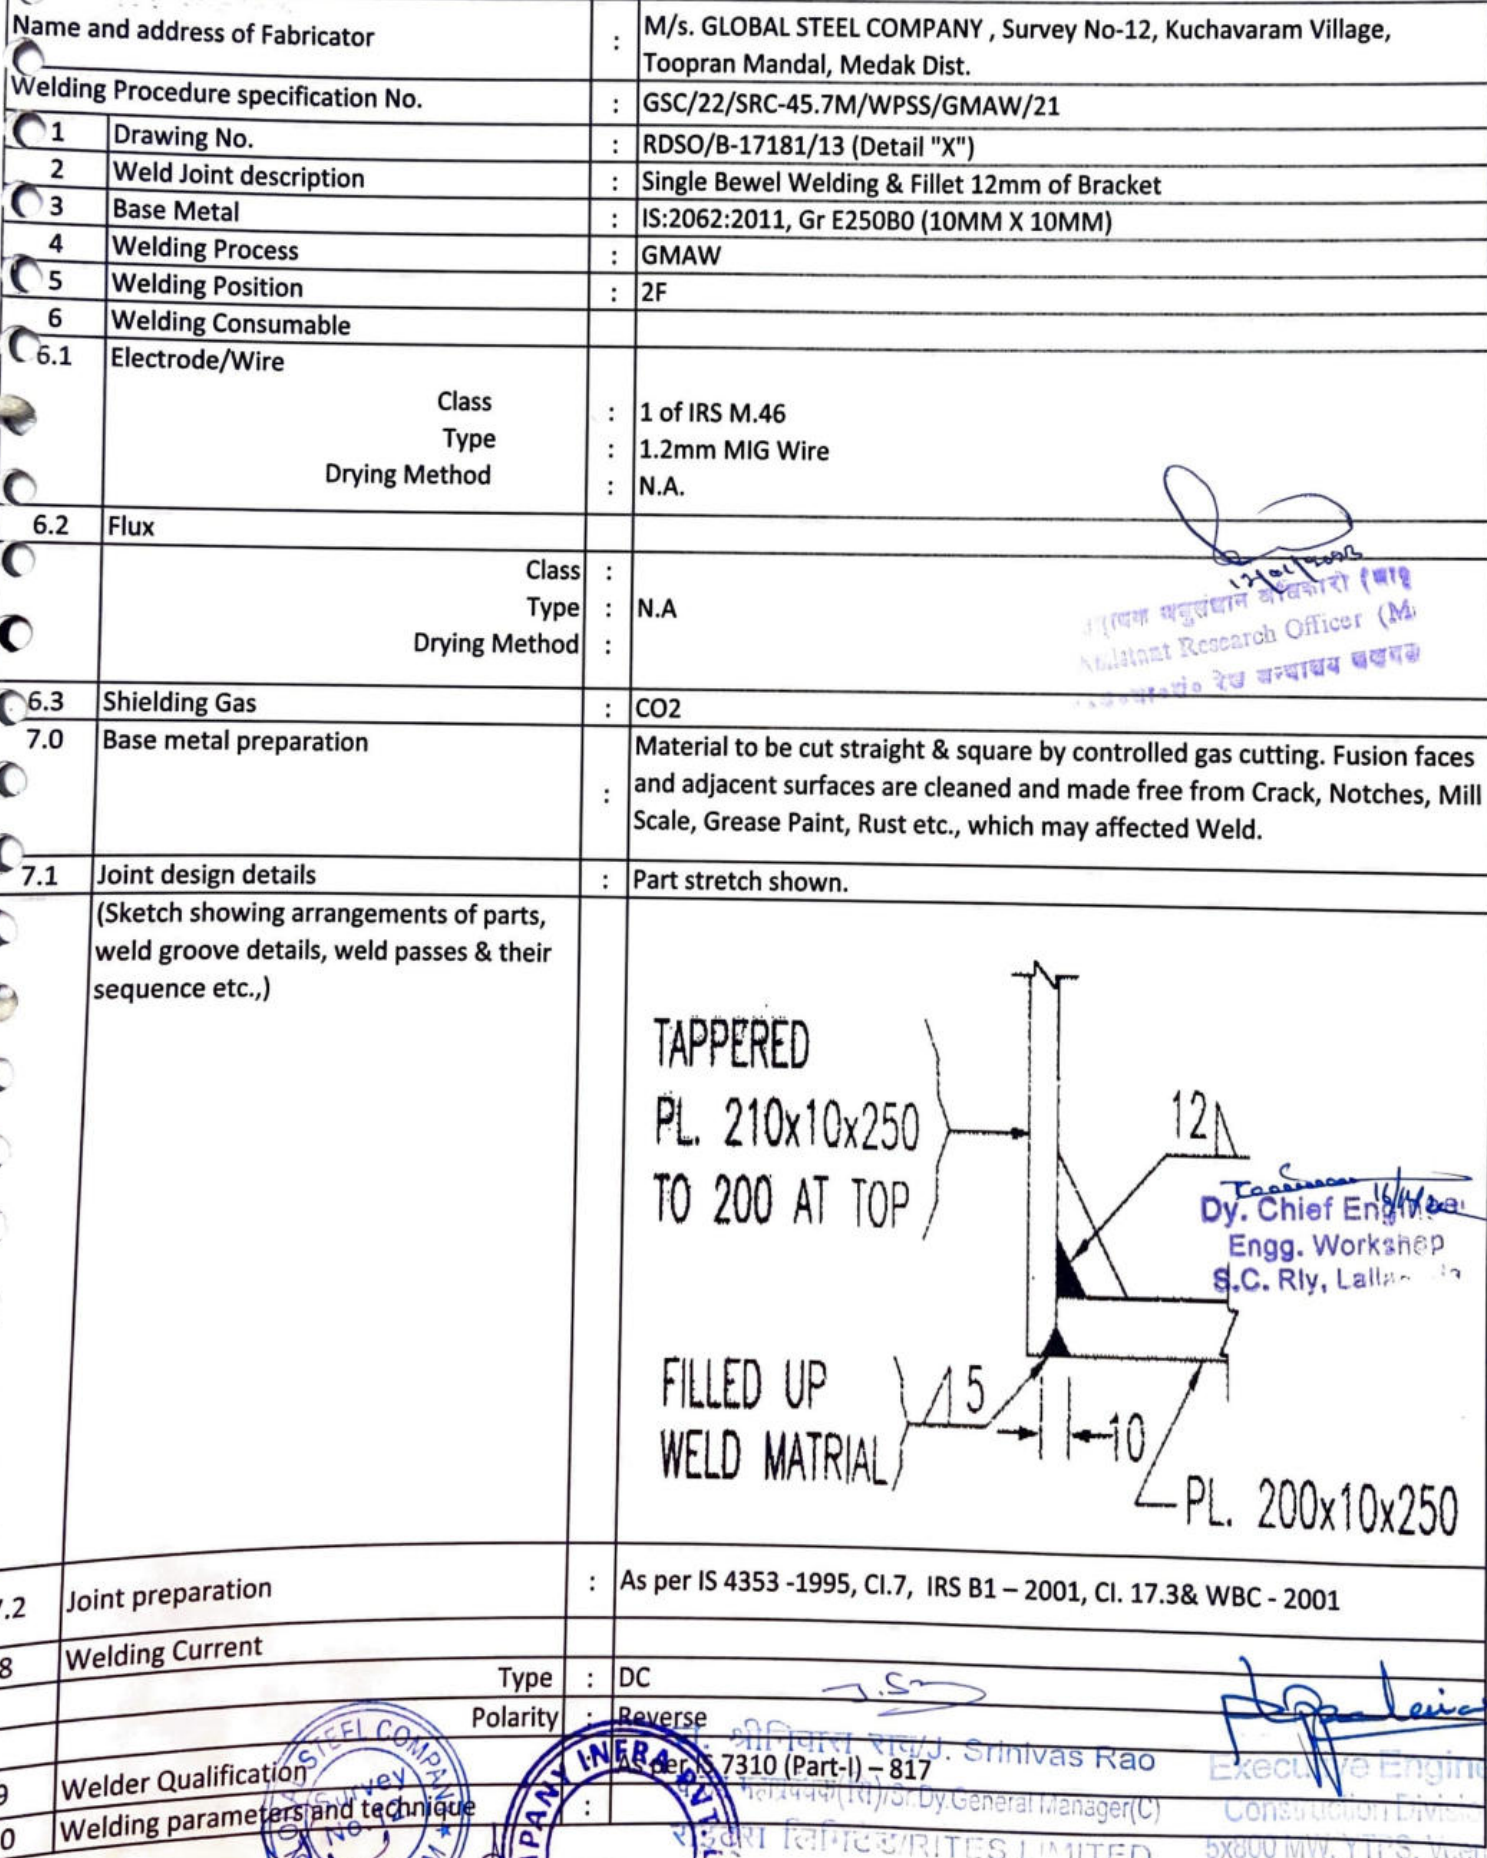 Name and address of Fabricator : M/s. GLOBAL STEEL COMPANY , Survey No-12, Kuchavaram Village,
Toopran Mandal, Medak Dist.
Welding Procedure specification No. : GSC/22/SRC-45.7M/WPSS/GMAW/21
1 Drawing No. : RDSO/B-17181/13 (Detail "X")
2 Weld Joint description : Single Bewel Welding & Fillet 12mm of Bracket
3 Base Metal : IS:2062:2011, Gr E250B0 (10MM X 10MM)
4 Welding Process : GMAW
5 Welding Position : 2F
6 Welding Consumable
6.1 Electrode/Wire
Class : 1 of IRS M.46
Type : 1.2mm MIG Wire
Drying Method : N.A.
6.2 Flux
Class :
Type : N.A
Drying Method :
Research Officer
6.3 Shielding Gas : CO2
7.0 Base metal preparation : Material to be cut straight & square by controlled gas cutting. Fusion faces
and adjacent surfaces are cleaned and made free from Crack, Notches, Mill
Scale, Grease Paint, Rust etc., which may affected Weld.
7.1 Joint design details : Part stretch shown.
(Sketch showing arrangements of parts,
weld groove details, weld passes & their
sequence etc.,)
TAPPERED
PL. 210x10x250
TO 200 AT TOP
12
Dy. Chief
Engg. Workshop
S.C. Rly,
FILLED UP
WELD MATRIAL
5
10
PL. 200x10x250
.2 Joint preparation : As per IS 4353 -1995, Cl.7, IRS B1 – 2001, Cl. 17.3& WBC - 2001
8 Welding Current
Type : DC
Polarity : Reverse
श्रीनिवास राव/J. Srinivas Rao
9 Welder Qualification : As per IS 7310 (Part-I) – 817
/Sr.Dy.General Manager(C)
0 Welding parameters and technique :
राइट्स लिमिटेड/RITES LIMITED
STEEL COMPANY
Survey
No.12
INFRA PVT.
Construction
5x800 MW, YTPS,